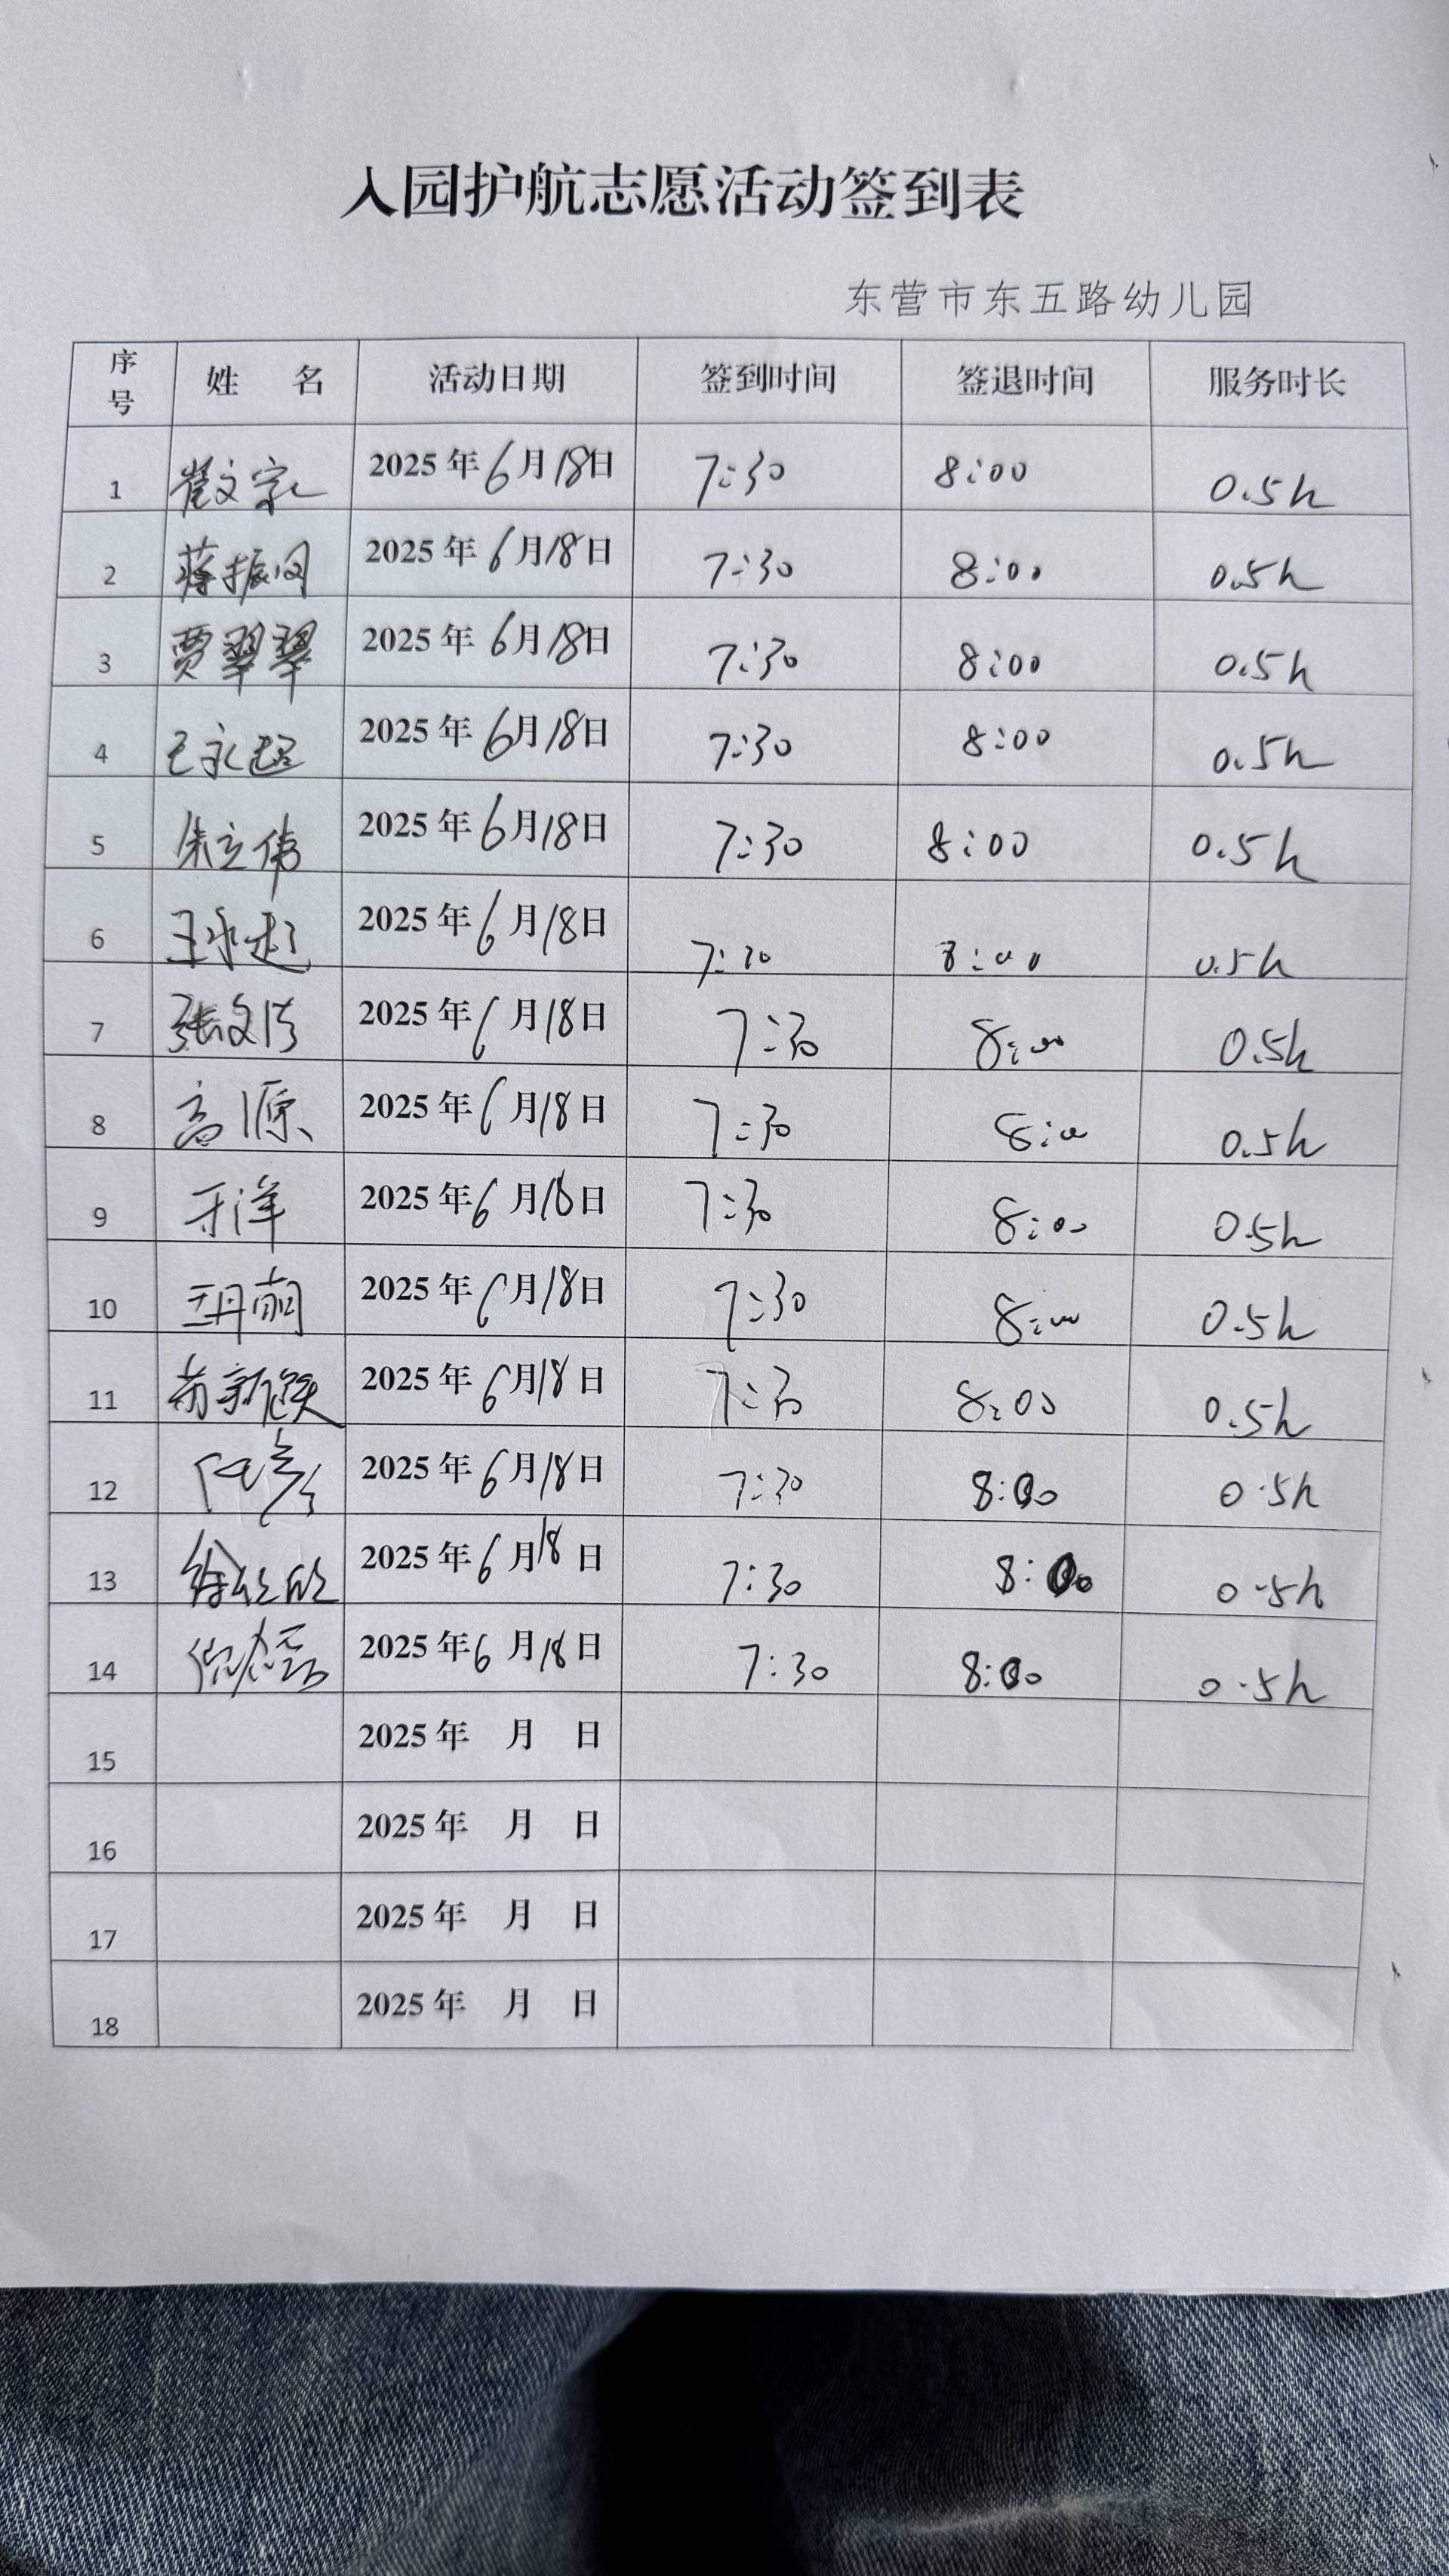 入园护航志愿活动签到表
东营市东五路幼儿园
序号 姓 名 活动日期 签到时间 签退时间 服务时长
1 崔文宗 2025年6月18日 7:30 8:00 0.5h
2 蒋振国 2025年6月18日 7:30 8:00 0.5h
3 贾翠翠 2025年6月18日 7:30 8:00 0.5h
4 王永超 2025年6月18日 7:30 8:00 0.5h
5 朱立伟 2025年6月18日 7:30 8:00 0.5h
6 王永起 2025年6月18日 7:30 8:00 0.5h
7 张文 2025年6月18日 7:30 8:00 0.5h
8 高源 2025年6月18日 7:30 8:00 0.5h
9 于洋 2025年6月18日 7:30 8:00 0.5h
10 王丹 2025年6月18日 7:30 8:00 0.5h
11 新 2025年6月18日 7:30 8:00 0.5h
12 2025年6月18日 7:30 8:00 0.5h
13 徐 2025年6月18日 7:30 8:00 0.5h
14 2025年6月18日 7:30 8:00 0.5h
15 2025年 月 日
16 2025年 月 日
17 2025年 月 日
18 2025年 月 日